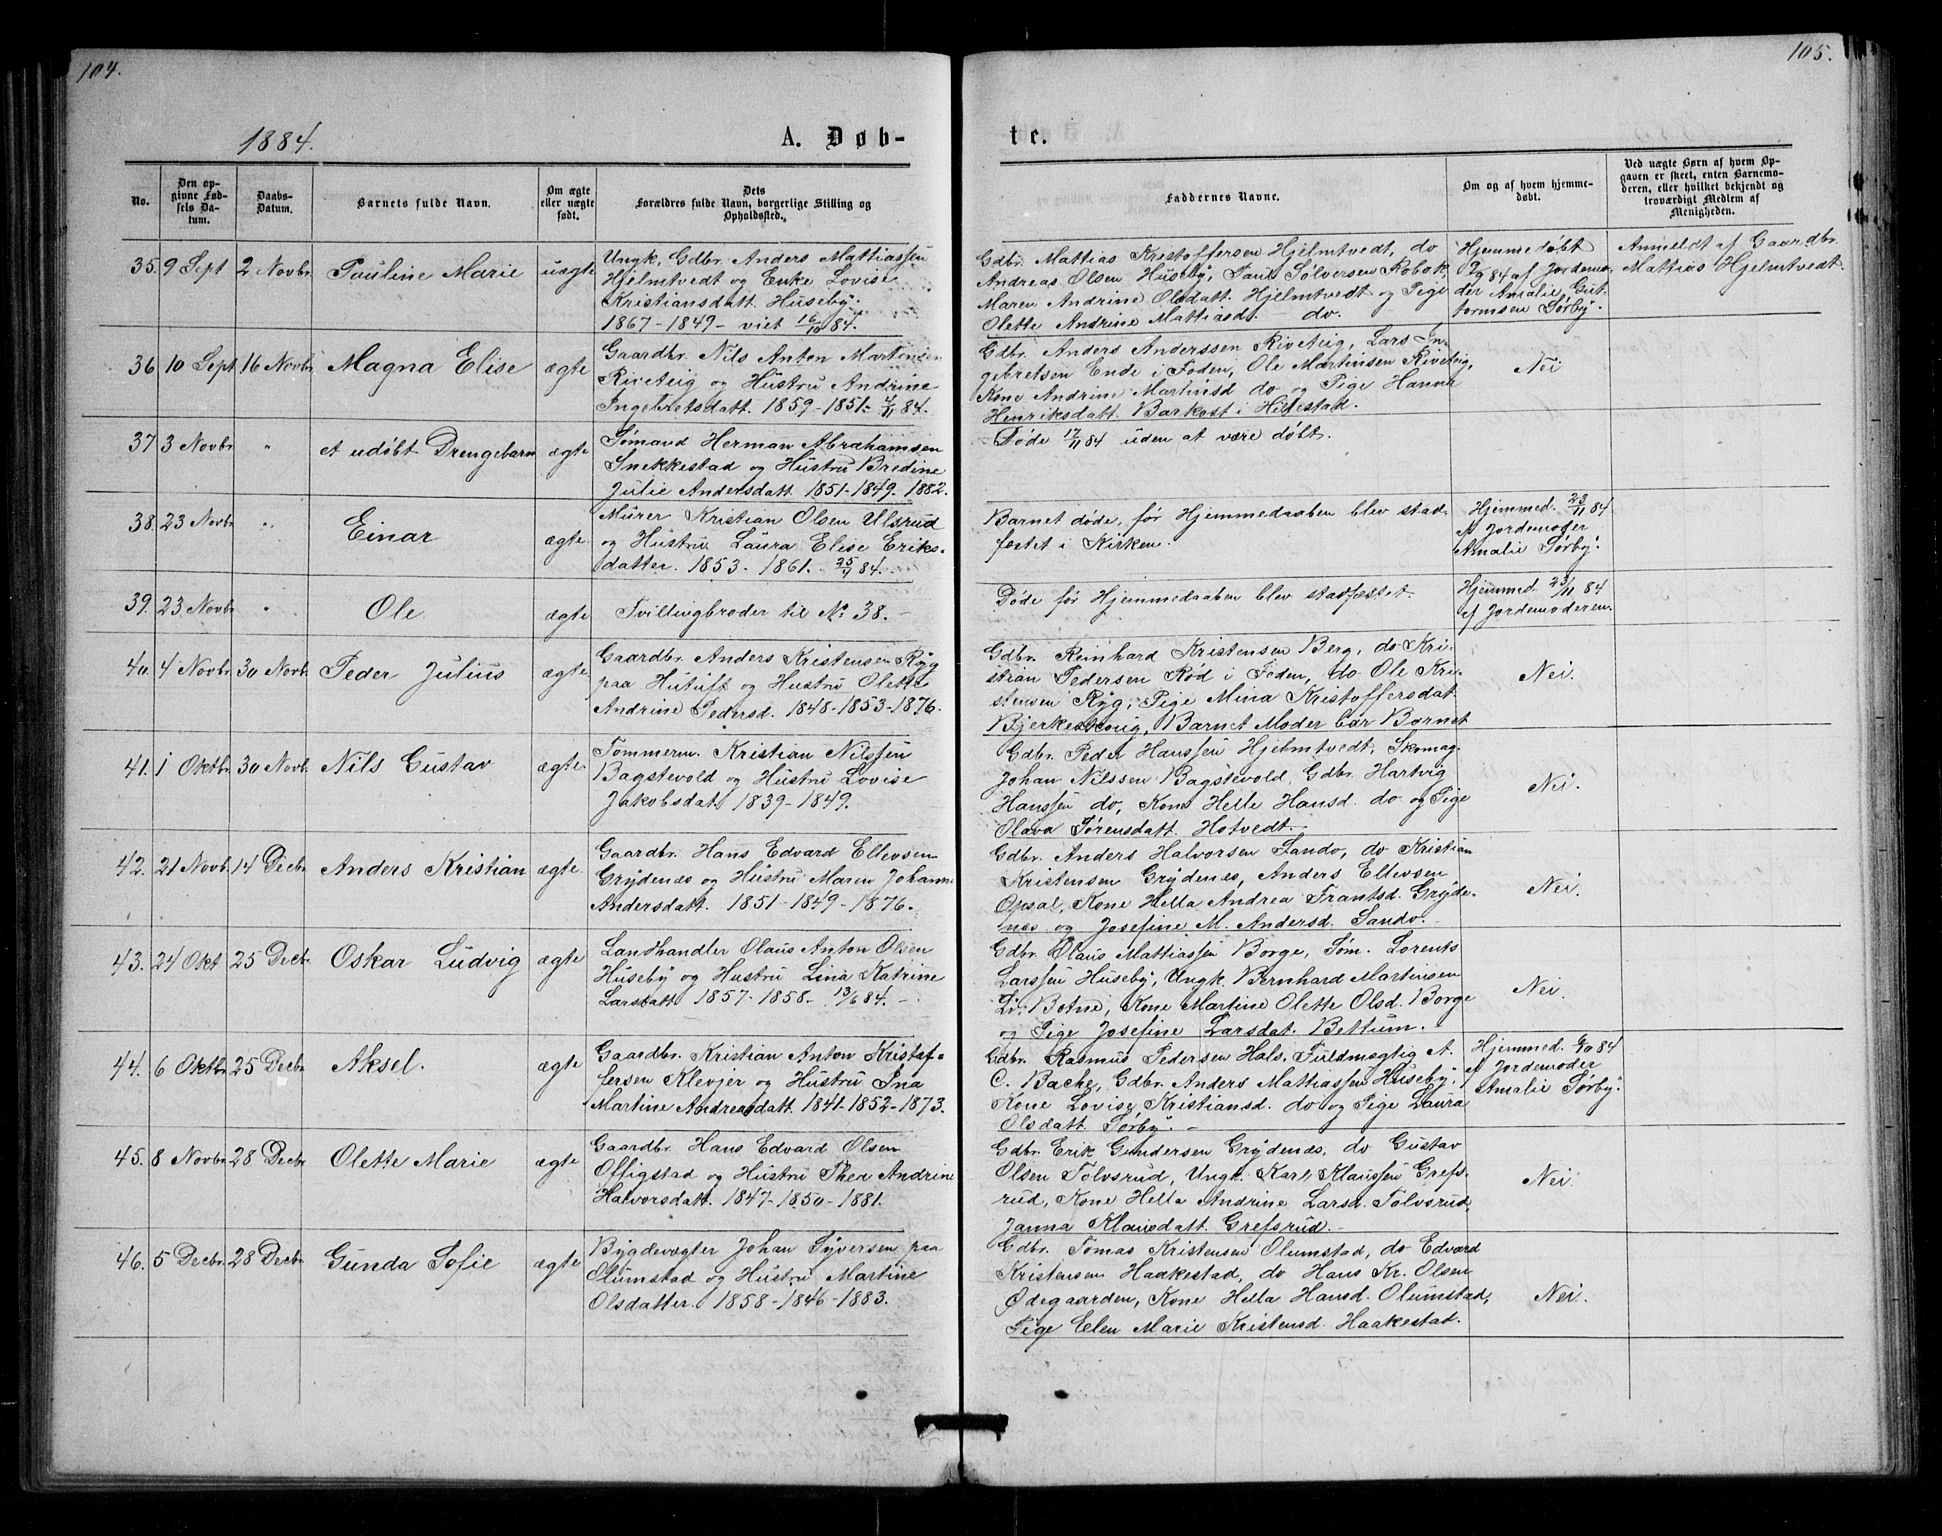 104.
1884.
A. Døb-
No.
Den op-
givne Fød-
sels Da-
tum.
Daabs-
Datum.
Barnets fulde Navn.
Om ægte
eller uægte
født.
Dets
Forældres fulde Navn, borgerlige Stilling og
Opholdssted.
35. 9 Sept 2 Novbr. Pauline Marie uægte
Ungk. Gdbr. Anders Mattiassen
Hjelmtvedt og Enke Lovise
Kristiansdatt. Huseby.
1867 - 1849 - viet 16/10 84.
36 10 Sept 16 Novbr Magna Elise ægte
Gaardbr. Nils Anton Martinsen
Riveteig og Hustru Andrine
Ingebretsdatt. 1859 - 1851 - 4/11 84.
37 3 Novbr " et udøbt Drengebarn ægte
Sømand Herman Abrahamsen
Snekkestad og Hustru Bredine
Julie Andersdatt. 1851 - 1849. 1882.
38. 23 Novbr " Einar ægte
Murer Kristian Olsen Ulsrud
og Hustru Laura Elise Eriks-
datter. 1853. 1861. 25/4 84.
39. 23 Novbr " Ole ægte
Tvillingbroder til No 38.
40. 4 Novbr 30 Novb. Peder Julius ægte
Gaardbr. Anders Kristensen Ryg
paa Hutuft og Hustru Olette
Andrine Pedersd. 1848 - 1853 - 1876.
41. 1 Oktbr 30 Novb. Nils Gustav ægte
Tømmerm. Kristian Nilssen
Bagstevold og Hustru Lovise
Jakobsdat. 1839 - 1849.
42. 21 Novb. 14 Decbr Anders Kristian ægte
Gaardbr. Hans Edvard Ellevsen
Grydenæs og Hustru Maren Johanne
Andersdatt. 1851 - 1849 - 1876.
43. 24 Okt 25 Decbr. Oskar Ludvig ægte
Landhandler Olaus Anton Olsen
Huseby og Hustru Lina Katrine
Larsdatt 1857 - 1858 - 13/6 84. -
44. 6 Oktbr 25 Decbr Aksel. ægte
Gaardbr. Kristian Anton Kristof-
fersen Klevjer og Hustru Ina
Martine Andreasdatt. 1841 - 1852 - 1873.
45. 8 Novbr 28 Decbr Olette Marie ægte
Gaardbr. Hans Edvard Olsen
Offigstad og Hustru Thea Andrine
Halvorsdatt. 1847 - 1850 - 1881.
46. 5 Decbr. 28 Decbr Gunda Sofie ægte
Bygdevægter Johan Syversen paa
Olumstad og Hustru Martine
Olsdatter. 1858 - 1846 - 1883.
105.
te.
Faddernes Navne.
Om og af hvem hjemme-
døbt.
Ved uægte Børn af hvem Op-
gaven er skeet, enten Barnemo-
deren, eller hvilket bekjendt og
troværdigt Medlem af
Menigheden.
Gdbr. Mattias Kristoffersen Hjelmtvedt, do
Andreas Olsen Huseby, Paul Sølversen Robok,
Maren Andrine Olsdatt. Hjelmtvedt og Pige
Olette Andrine Mattiasd. do.
Hjemmedøbt
9/9 84 af Jordemo-
der Amalie Gut-
tormsen Sørby.
Anmeldt af Gaardbr.
Mattias Hjelmtvedt.
Gdbr. Anders Anderssen Riveteig, Lars In-
gebretsen Ende i Foden, Ole Martinsen Riveteig,
Kone Andrine Martinsd do og Pige Hanna
Henriksdatt. Barkost i Hillestad.
Nei
Døde 17/11 84 uden at være døbt.
Barnet døde, før Hjemmedaaben blev stad-
fæstet i Kirken.
Hjemmed. 23/11 84
af Jordemoder
Amalie Sørby.
Døde før Hjemmedaaben blev stadfæstet.
Hjemmed 23/11 84
af Jordemoderen.
Gdbr. Reinhard Kristensen Berg, do Kri-
stian Pedersen Rød i Foden, do Ole Kri-
stensen Ryg, Pige Mina Kristoffersdat.
Bjerkeskoug, Barnet Moder bar Barnet
Nei.
Gdbr. Peder Hanssen Hjelmtvedt, Skomag.
Johan Nilssen Bagstevold, Gdbr. Hartvig
Hanssen do, Kone Helle Hansd. do og Pige
Olava Sørensdatt. Hotvedt. -
Nei.
Gdbr. Anders Halvorsen Sando, do Kristian
Kristensen Grydenæs, Anders Ellevsen
Opsal, Kone Hella Andrea Frantsd. Gryde-
næs og Josefine M. Andersd. Sando.
Nei.
Gdbr. Olaus Mattiassen Borge, Søm. Lorents
Larssen Huseby, Ungk. Bernhard Martinsen
Lr. Botne, Kone Martine Olette Olsd. Borge
og Pige Josefine Larsdat. Bettum.
Nei.
Gdbr. Rasmus Pedersen Hals, Fuldmægtig A.
C. Bache, Gdbr. Anders Mattiassen Huseby,
Kone Lovise Kristiansd. do og Pige Laura
Olsdatt. Sørby. -
Hjemmed. 6/10 84
af Jordemoder
Amalie Sørby.
Gdbr. Erik Gundersen Grydenæs, do Gustav
Olsen Tolvsrud, Ungk. Karl Klaussen Grefs-
rud, Kone Hella Andrine Larsd. Tolvsrud,
Janna Klausdatt. Grefsrud. -
Nei.
Gdbr. Tomas Kristensen Olumstad, do Edvard
Kristensen Haakestad, do Hans Kr. Olsen
Ødegaarden, Kone Hella Hansd. Olumstad,
Pige Elen Marie Kristensd. Haakestad.
Nei.